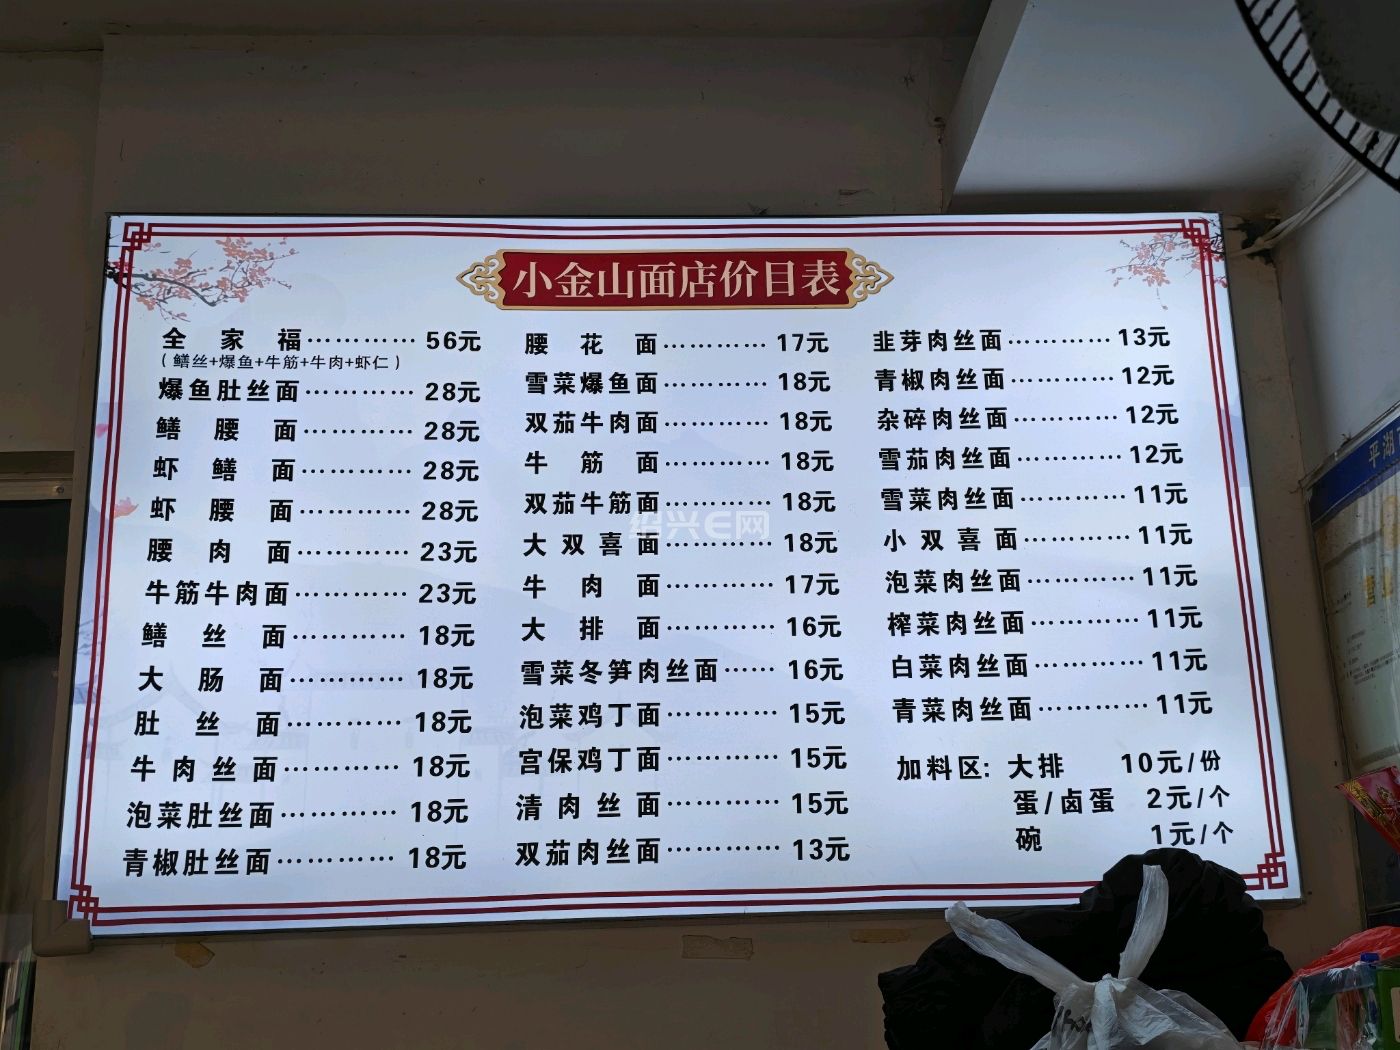 小金山面店价目表
全家福…………56元
(鳝丝+爆鱼+牛筋+牛肉+虾仁)
爆鱼肚丝面…………28元
鳝腰面…………28元
虾鳝面…………28元
虾腰面…………28元
腰肉面…………23元
牛筋牛肉面…………23元
鳝丝面…………18元
大肠面…………18元
肚丝面…………18元
牛肉丝面…………18元
泡菜肚丝面…………18元
青椒肚丝面…………18元
腰花面…………17元
雪菜爆鱼面…………18元
双茄牛肉面…………18元
牛筋面…………18元
双茄牛筋面…………18元
大双喜面…………18元
牛肉面…………17元
大排面…………16元
雪菜冬笋肉丝面……16元
泡菜鸡丁面…………15元
宫保鸡丁面…………15元
清肉丝面…………15元
双茄肉丝面…………13元
韭芽肉丝面…………13元
青椒肉丝面…………12元
杂碎肉丝面…………12元
雪茄肉丝面…………12元
雪菜肉丝面…………11元
小双喜面…………11元
泡菜肉丝面…………11元
榨菜肉丝面…………11元
白菜肉丝面…………11元
青菜肉丝面…………11元
加料区: 大排 10元/份
蛋/卤蛋 2元/个
碗 1元/个
绍兴E网
平湖